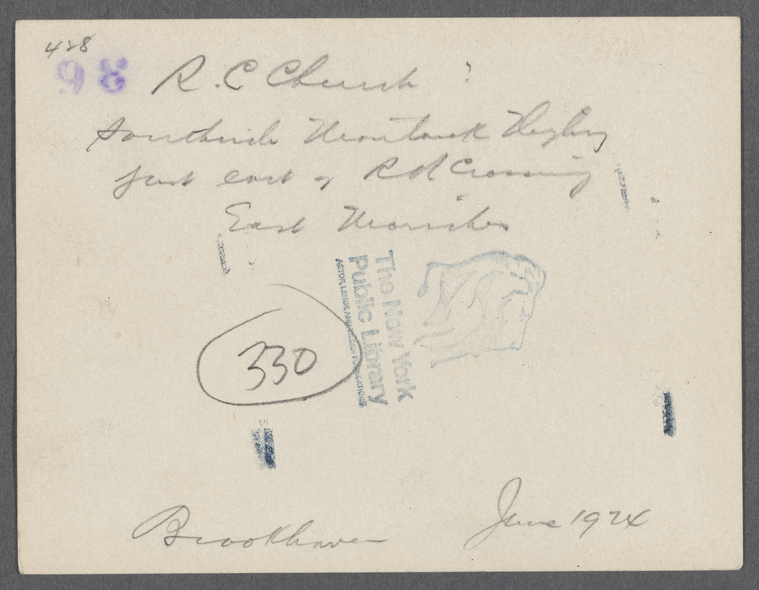 428
98 R.C Church ?
Southside Montauk Highwy
just east of RR Crossing
East Moriches
The New York
Public Library
ASTOR, LENOX AND TILDEN FOUNDATIONS
330
Brookhaven June 1924